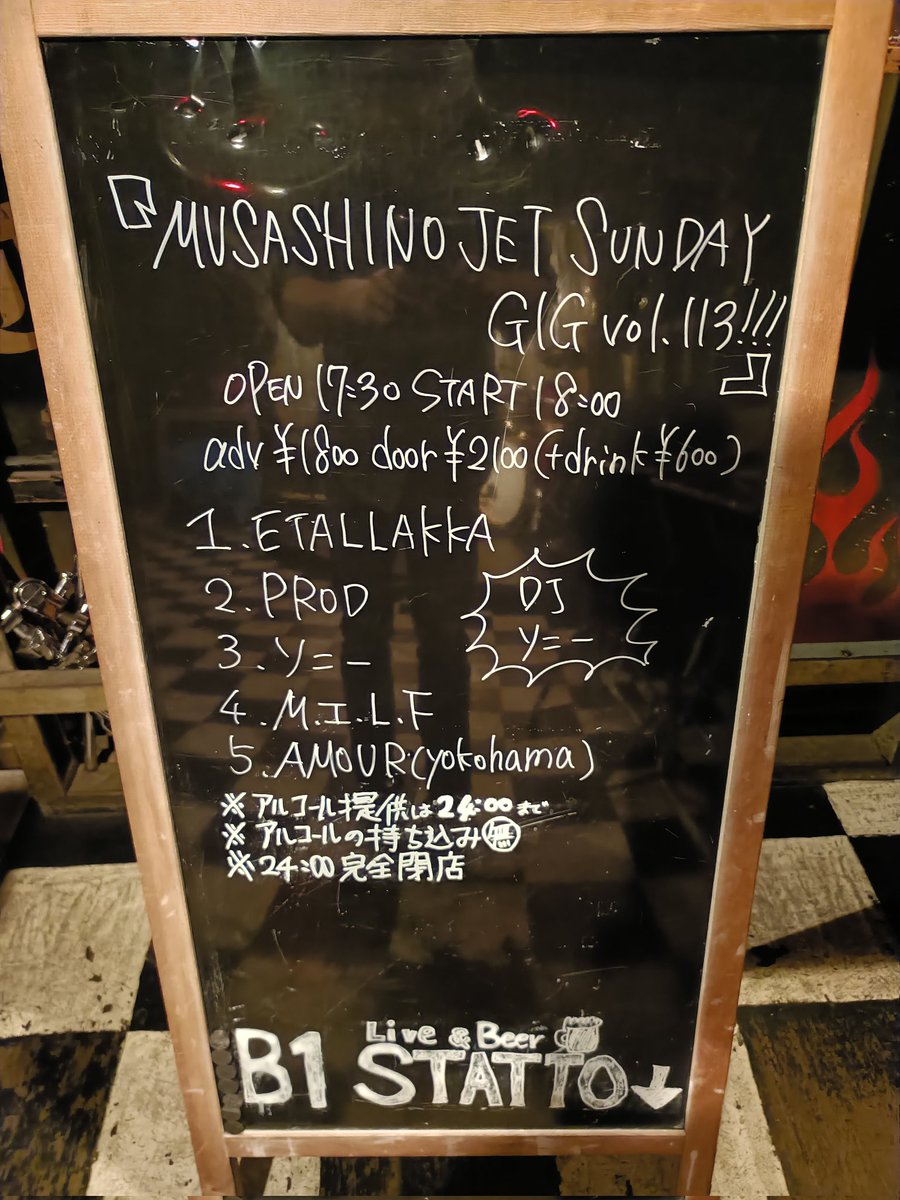 『MUSASHINO JET SUNDAY
GIG vol.113!!!』
OPEN 17:30 START 18:00
adv ¥1800 door ¥2100 (+drink ¥600)
1. ETALLAKKA
2. PROD
3. y=-
4. M.I.L.F
5. AMOUR(yokohama)
DJ
y=-
※アルコール提供は24:00まで
※アルコールの持ち込み無
※24:00完全閉店
Live & Beer
B1 STATTO↓